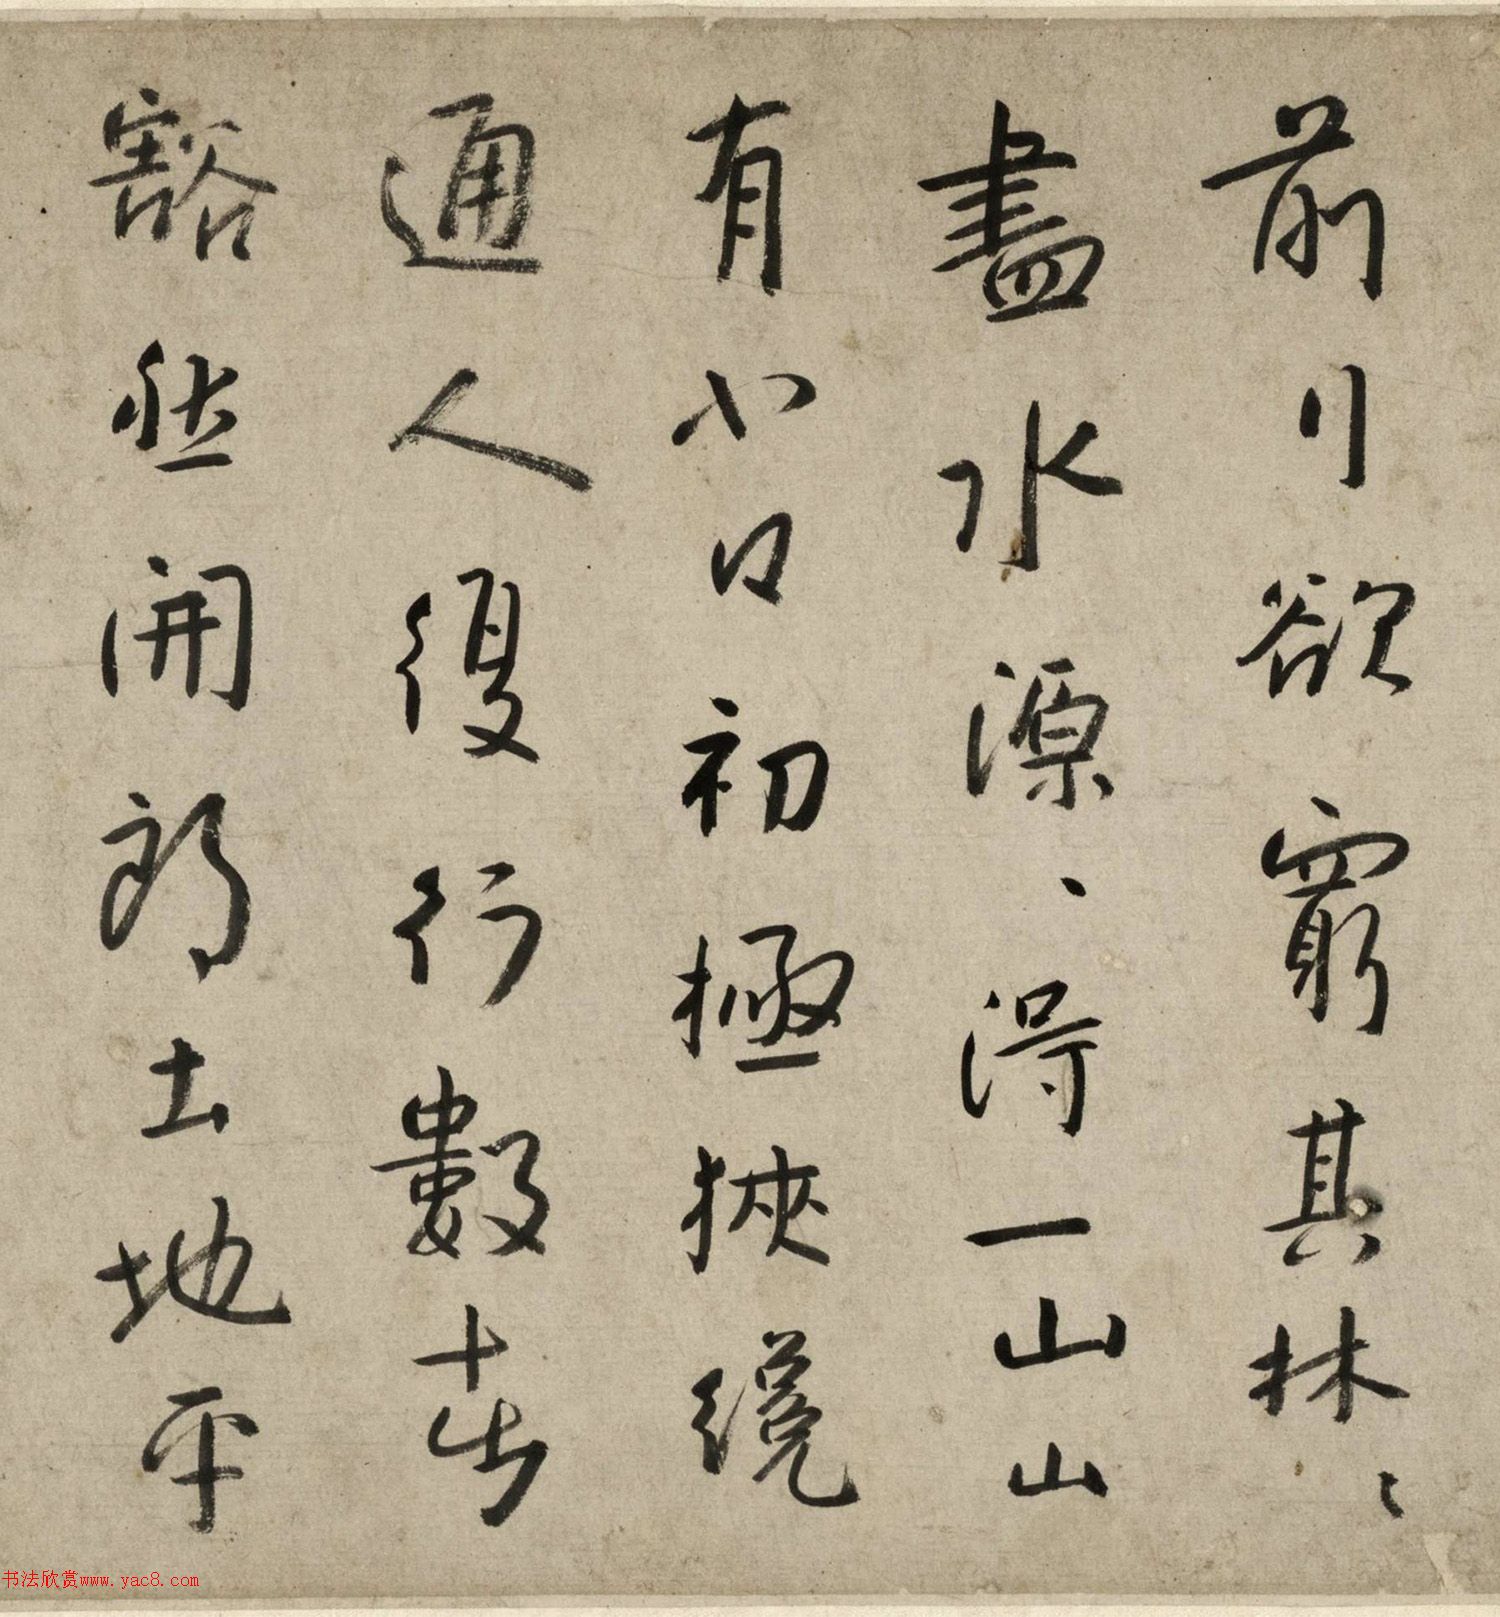 前行欲窮其林〻
盡水源〻得一山山
有小口初極狹纔
通人復行數十步
豁然開朗土地平
书法欣赏www.yac8.com